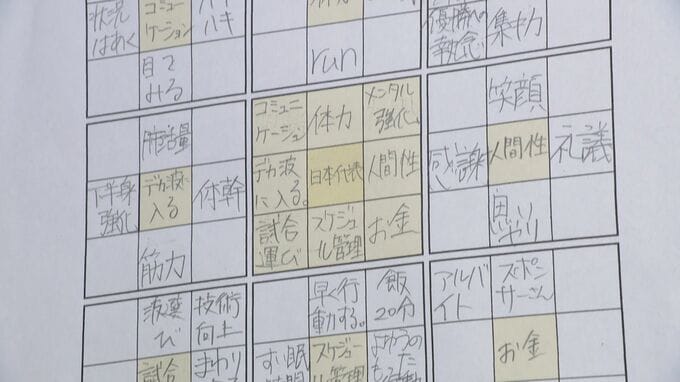 状況
はあく
コミュニ
ケーション
ハキ
run
優勝への
執念
集中力
目で
みる
肺活量
下半身
強化
デカ波に
入る
体幹
筋力
コミュニ
ケーション
体力
メンタル
強化
デカ波
に入る。
日本代表
人間性
試合
運び
スケジュ
ール管理
お金
笑顔
感謝
人間性
礼議
思い
やり
波選
び
技術
向上
試合
まわり
早く行
動する。
飯
20分
スケジュー
ル管理
アルバ
イト
スポン
サーさん
お金